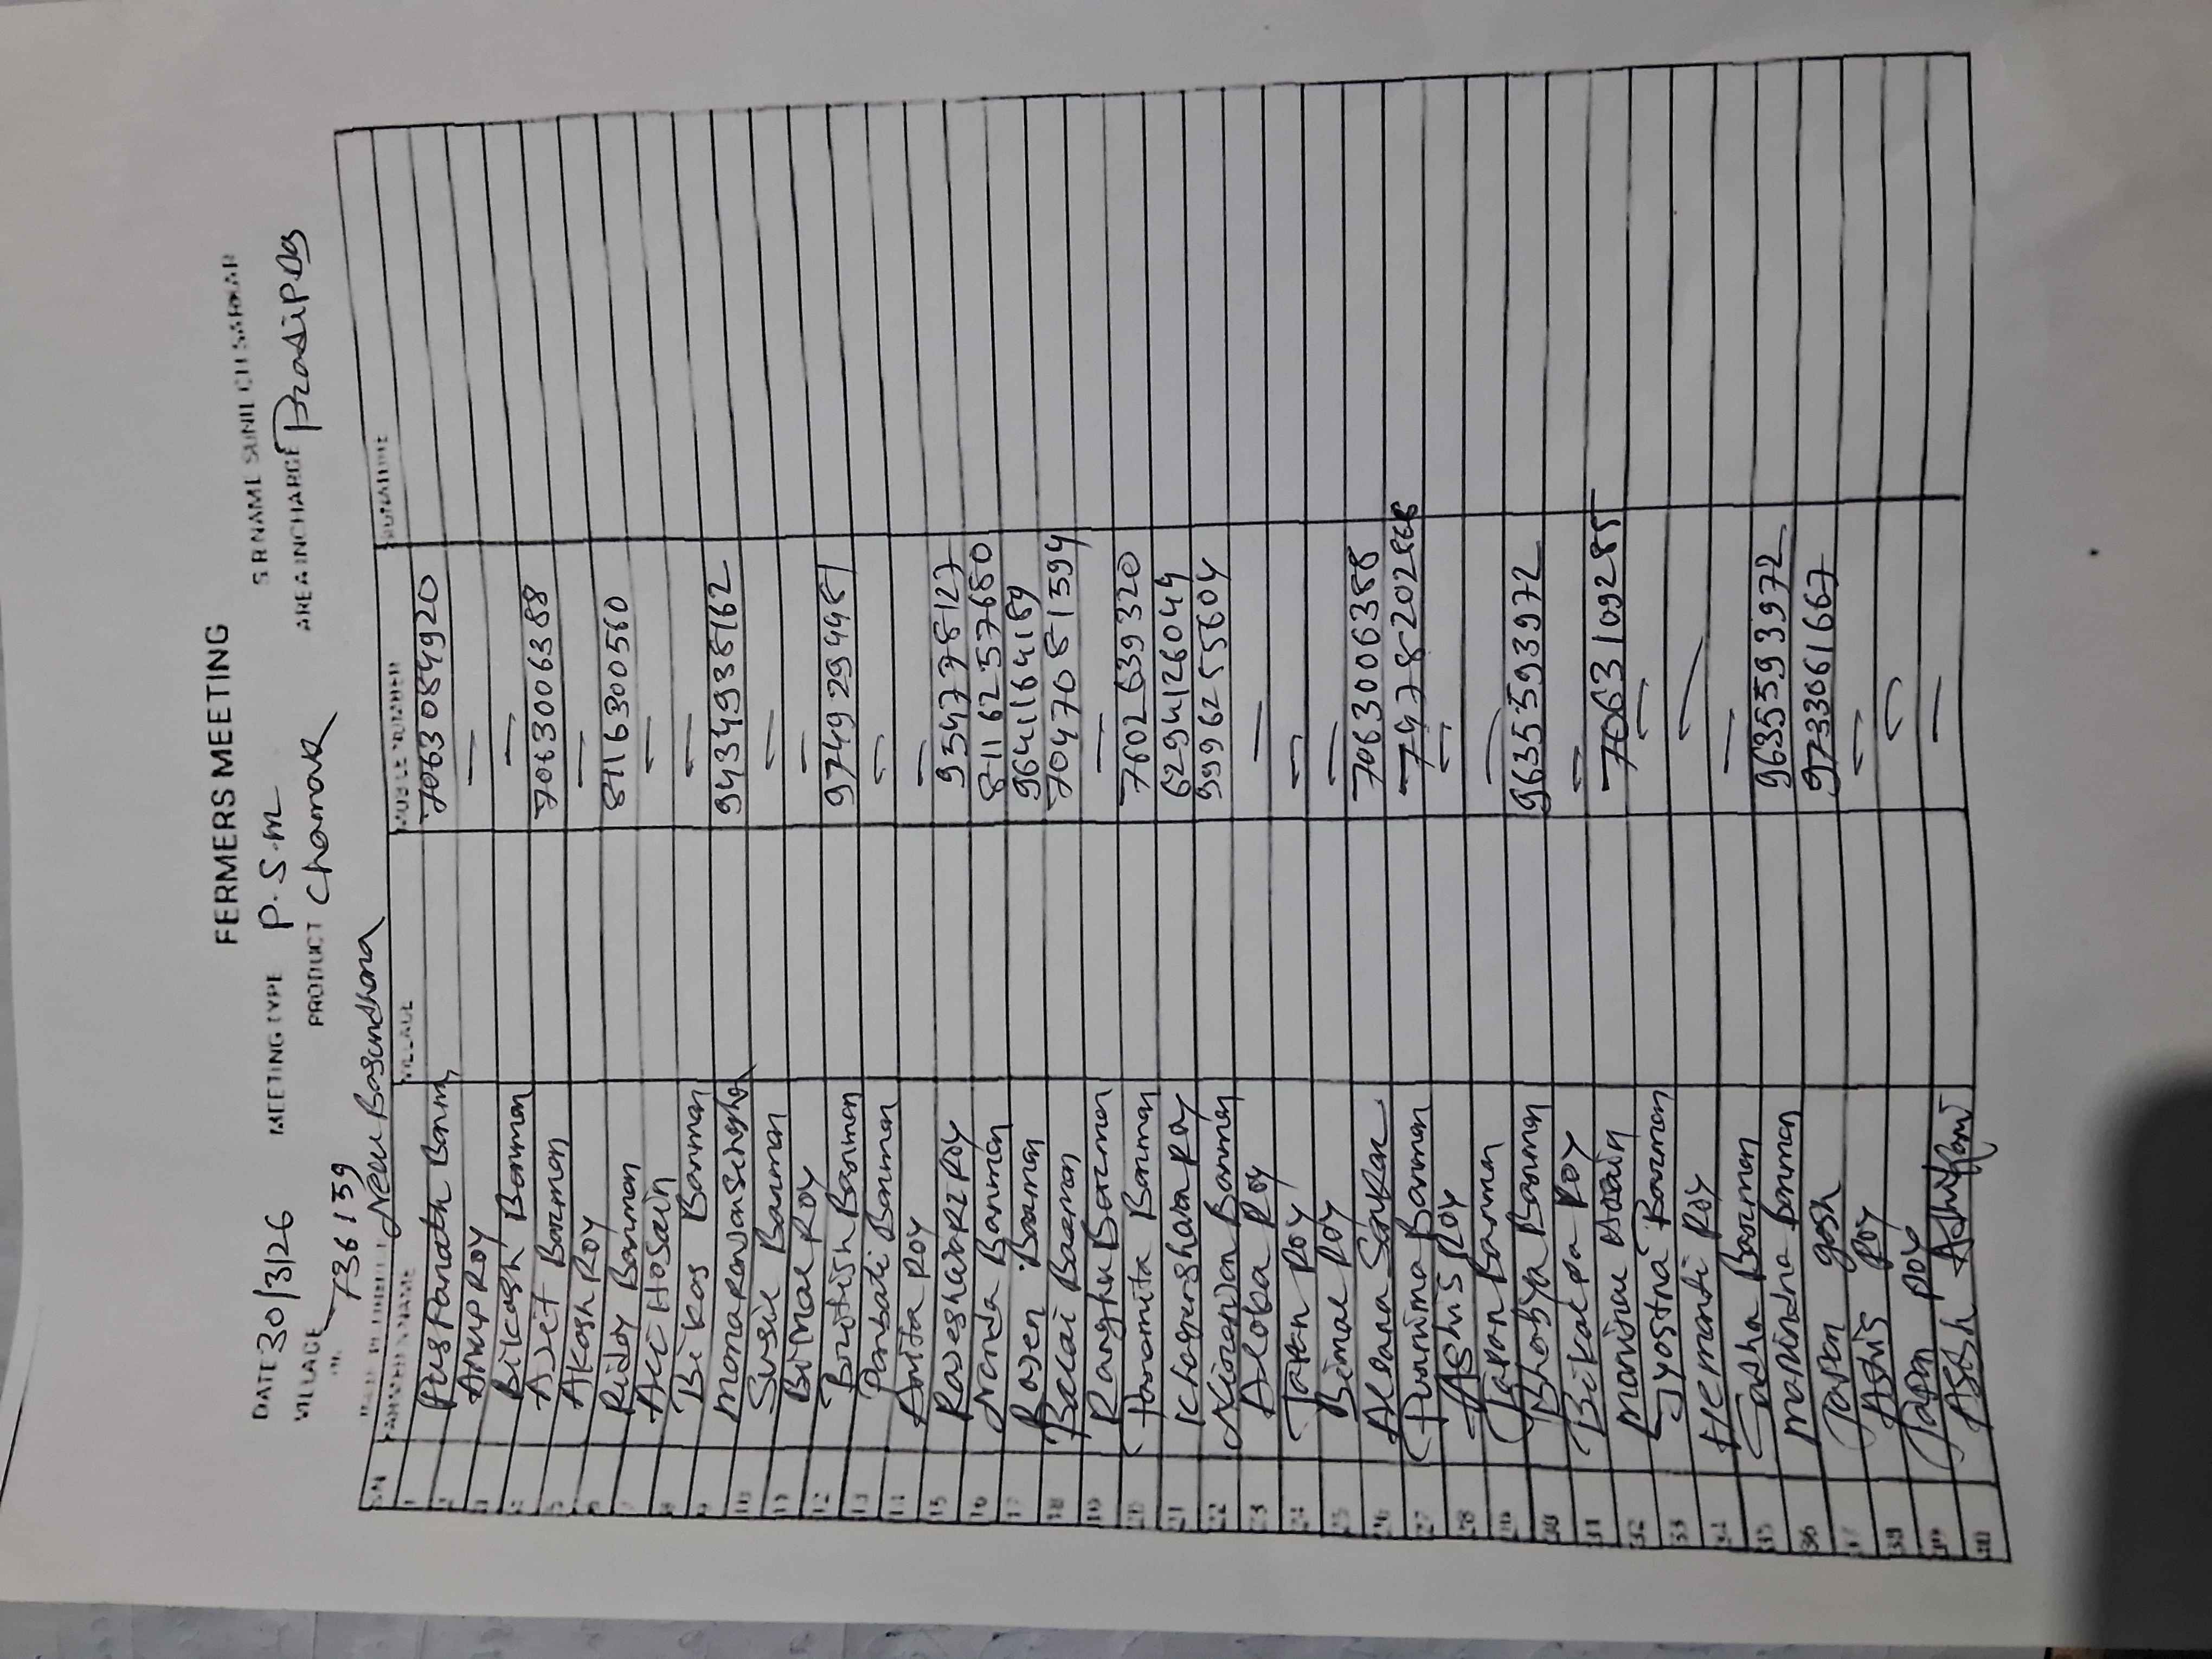 FERMERS MEETING
DATE 30/3/26 MEETING TYPE P.S.M S R NAME SUNIL CH SARKAR
VILLAGE PRODUCT Chamak AREA INCHARGE Pradip Das
736159
New Basundhara
SN FARMERS NAME VILLAGE MOBILE NUMBER SIGNATURE
1 Pusparath Barman 7063084920
2 Anup Roy —
3 Bikash Barman —
4 Ajet Barman 7063006388
5 Akash Roy —
6 Ridoy Barman 8116300560
7 Ali Hosain —
8 Bikas Barman —
9 Monaranjansingha 9434938162
10 Susil Barman —
11 Bimal Roy —
12 British Barman 9749294481
13 Parbati Barman —
14 Anita Roy —
15 Rajeshwari Roy 9547778127
16 Nanda Barman 8116257680
17 Rajen Barman 9641164189
18 Balai Barman 7047081594
19 Ranghu Barman —
20 Paramita Barman 7602639320
21 Khageshwar Roy 6294126044
22 Niranjan Barman 9996255604
23 Aloka Roy —
24 Tapan Roy —
25 Bimal Roy —
26 Alpana Sarkar 7063006388
27 Purnima Barman
28 Ashis Roy —
29 Tapan Barman —
30 Bhabya Barman 9635593972
31 Bikalpa Roy —
32 Manirul Hosain 7063109285
33 Jyostna Barman —
34 Hemanti Roy —
35 Barman —
36 Manindra Barman 9635593972
37 Tapan gosh 9733061667
38 Ashis Roy —
39 Tapan Roy —
40 —